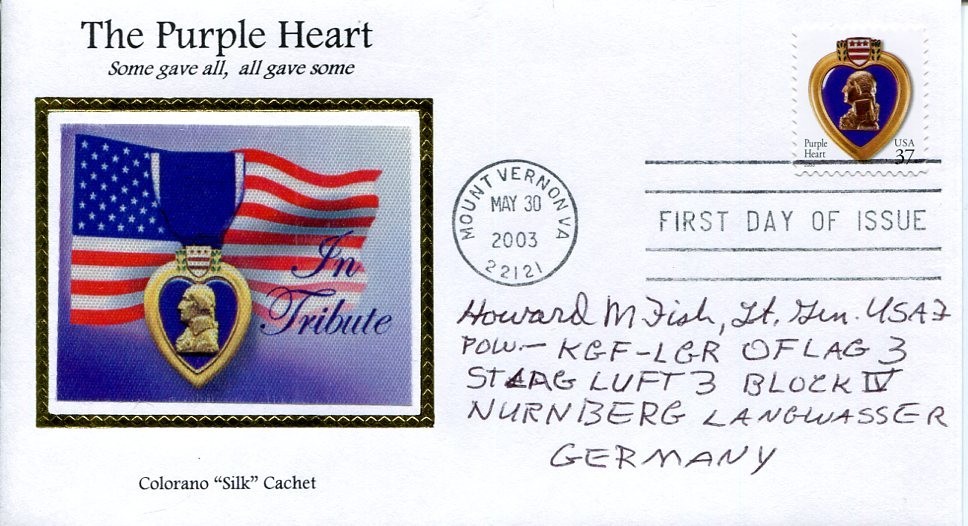 The Purple Heart
Some gave all, all gave some
In
Tribute
Colorano "Silk" Cachet
Purple
Heart
USA
37
MOUNT VERNON VA
MAY 30
2003
22121
FIRST DAY OF ISSUE
Howard M Fish, Lt. Gen. USAF
POW.- KGF-LGR OFLAG 3
STALAG LUFT 3 BLOCK IV
NURNBERG LANGWASSER
GERMANY